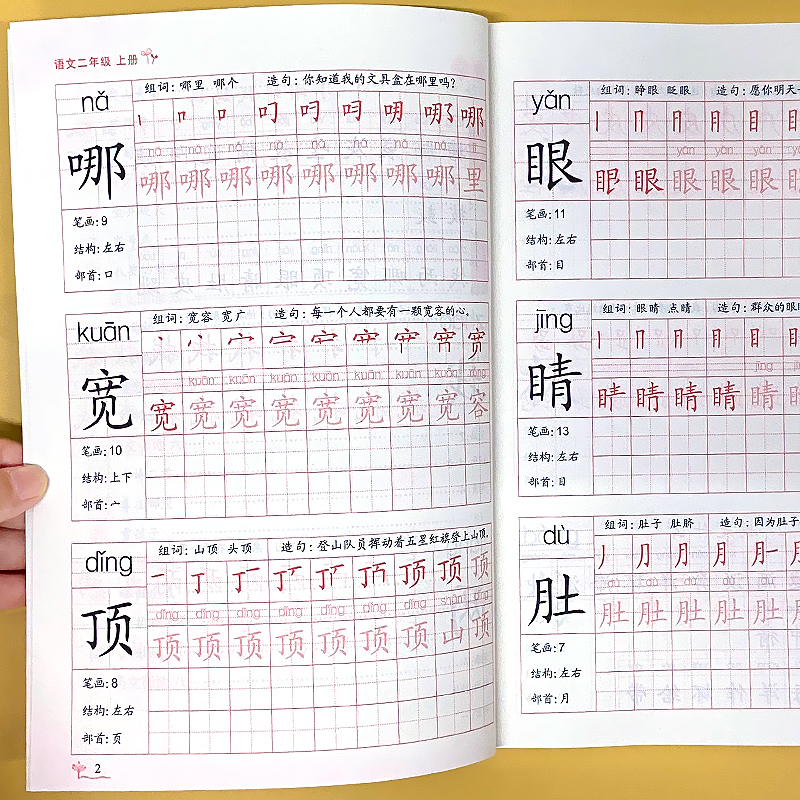 语文二年级 上册
nǎ
组词: 哪里 哪个 造句: 你知道我的文具盒在哪里吗?
哪
哪 哪 哪 哪 哪 哪 哪 哪 里
笔画: 9
结构: 左右
部首: 口
kuān
组词: 宽容 宽广 造句: 每一个人都要有一颗宽容的心。
kuān kuān kuān kuān kuān kuān kuān róng
宽
宽 宽 宽 宽 宽 宽 宽 宽 容
笔画: 10
结构: 上下
部首: 宀
dǐng
组词: 山顶 头顶 造句: 登山队员挥动着五星红旗登上山顶。
dǐng dǐng dǐng dǐng dǐng dǐng dǐng shān dǐng
顶
顶 顶 顶 顶 顶 顶 顶 山 顶
笔画: 8
结构: 左右
部首: 页
2
yǎn
组词: 睁眼 眨眼 造句: 愿你明天
yǎn yǎn yǎn yǎn
眼
眼 眼 眼 眼 眼 眼
笔画: 11
结构: 左右
部首: 目
jīng
组词: 眼睛 点睛 造句: 群众的眼
jīng jīng
睛
睛 睛 睛 睛 睛 睛
笔画: 13
结构: 左右
部首: 目
dù
组词: 肚子 肚脐 造句: 因为肚子
dù dù dù dù dù
肚
肚 肚 肚 肚 肚 肚
笔画: 7
结构: 左右
部首: 月